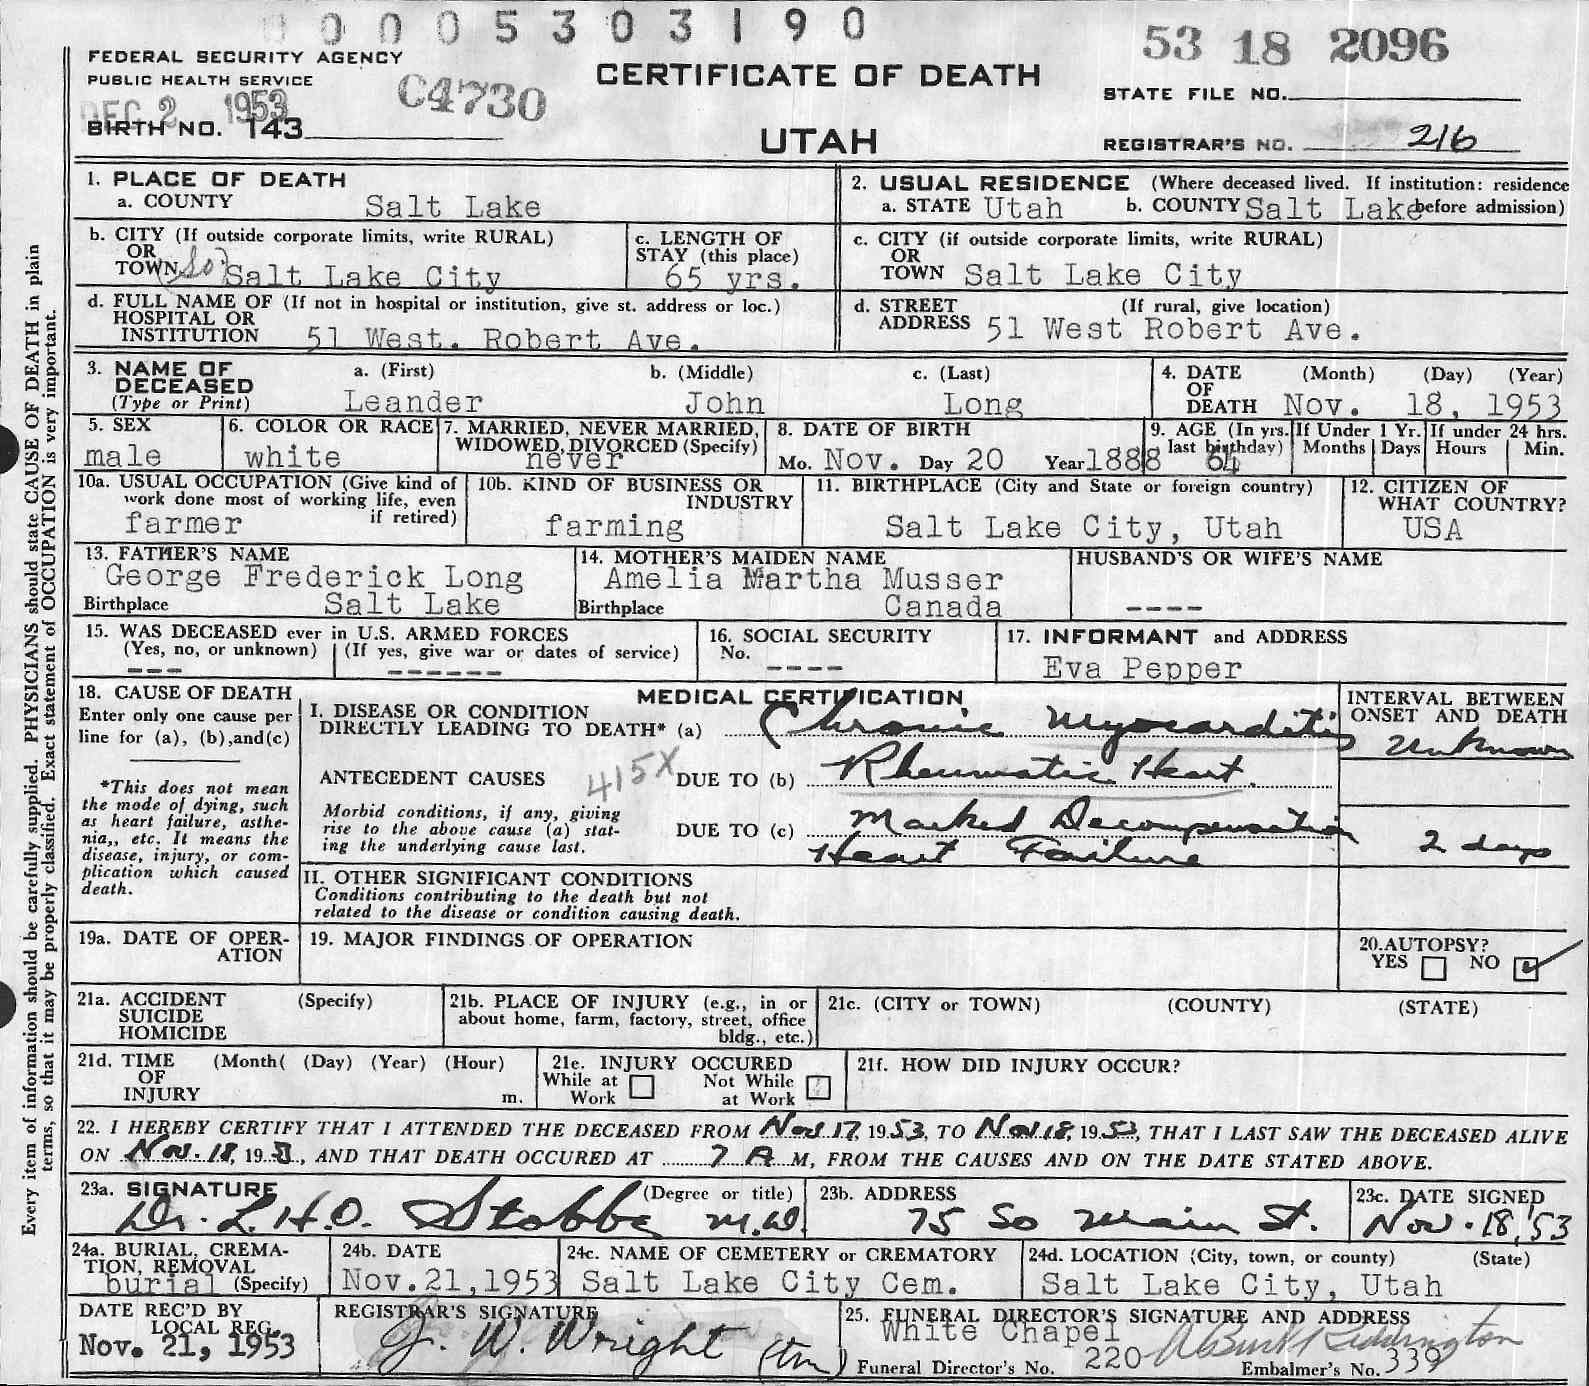 0 0 0 0 5 3 0 3 1 9 0
53 18 2096
FEDERAL SECURITY AGENCY
PUBLIC HEALTH SERVICE
DEC 2 1953
C4730
CERTIFICATE OF DEATH
STATE FILE NO.
BIRTH NO. 143
UTAH
REGISTRAR'S NO. 216
1. PLACE OF DEATH
a. COUNTY Salt Lake
2. USUAL RESIDENCE (Where deceased lived. If institution: residence before admission)
a. STATE Utah b. COUNTY Salt Lake
b. CITY (If outside corporate limits, write RURAL)
OR
TOWN So Salt Lake City
c. LENGTH OF
STAY (this place)
65 yrs.
c. CITY (if outside corporate limits, write RURAL)
OR
TOWN Salt Lake City
d. FULL NAME OF (If not in hospital or institution, give st. address or loc.)
HOSPITAL OR
INSTITUTION 51 West. Robert Ave.
d. STREET (If rural, give location)
ADDRESS 51 West Robert Ave.
3. NAME OF
DECEASED
(Type or Print)
a. (First) b. (Middle) c. (Last)
Leander John Long
4. DATE (Month) (Day) (Year)
OF
DEATH Nov. 18, 1953
5. SEX
male
6. COLOR OR RACE
white
7. MARRIED, NEVER MARRIED,
WIDOWED, DIVORCED (Specify)
never
8. DATE OF BIRTH
Mo. Nov. Day 20 Year 1888
9. AGE (In yrs.
last birthday)
64
If Under 1 Yr.
Months Days
If under 24 hrs.
Hours Min.
10a. USUAL OCCUPATION (Give kind of
work done most of working life, even
if retired)
farmer
10b. KIND OF BUSINESS OR
INDUSTRY
farming
11. BIRTHPLACE (City and State or foreign country)
Salt Lake City, Utah
12. CITIZEN OF
WHAT COUNTRY?
USA
13. FATHER'S NAME
George Frederick Long
Birthplace Salt Lake
14. MOTHER'S MAIDEN NAME
Amelia Martha Musser
Birthplace Canada
HUSBAND'S OR WIFE'S NAME
----
15. WAS DECEASED ever in U.S. ARMED FORCES
(Yes, no, or unknown) (If yes, give war or dates of service)
--- ------
16. SOCIAL SECURITY
No. ----
17. INFORMANT and ADDRESS
Eva Pepper
18. CAUSE OF DEATH
Enter only one cause per
line for (a), (b), and (c)
*This does not mean
the mode of dying, such
as heart failure, asthe-
nia,, etc. It means the
disease, injury, or com-
plication which caused
death.
MEDICAL CERTIFICATION
I. DISEASE OR CONDITION
DIRECTLY LEADING TO DEATH* (a) Chronic Myocarditis
ANTECEDENT CAUSES 415X DUE TO (b) Rheumatic Heart.
Morbid conditions, if any, giving
rise to the above cause (a) stat-
ing the underlying cause last.
DUE TO (c) Marked Decompensation
Heart Failure
INTERVAL BETWEEN
ONSET AND DEATH
Unknown
2 days
II. OTHER SIGNIFICANT CONDITIONS
Conditions contributing to the death but not
related to the disease or condition causing death.
19a. DATE OF OPER-
ATION
19. MAJOR FINDINGS OF OPERATION
20. AUTOPSY?
YES NO
21a. ACCIDENT (Specify)
SUICIDE
HOMICIDE
21b. PLACE OF INJURY (e.g., in or
about home, farm, factory, street, office
bldg., etc.)
21c. (CITY or TOWN) (COUNTY) (STATE)
21d. TIME (Month( (Day) (Year) (Hour)
OF
INJURY m.
21e. INJURY OCCURED
While at Work Not While at Work
21f. HOW DID INJURY OCCUR?
22. I HEREBY CERTIFY THAT I ATTENDED THE DECEASED FROM Nov 17, 1953, TO Nov 18, 1953, THAT I LAST SAW THE DECEASED ALIVE
ON Nov. 18, 1953, AND THAT DEATH OCCURED AT 7 A M, FROM THE CAUSES AND ON THE DATE STATED ABOVE.
23a. SIGNATURE (Degree or title)
Dr. L.H.O. Stobbe M.D.
23b. ADDRESS
75 So Main St.
23c. DATE SIGNED
Nov. 18, '53
24a. BURIAL, CREMA-
TION, REMOVAL
burial (Specify)
24b. DATE
Nov.21,1953
24c. NAME OF CEMETERY or CREMATORY
Salt Lake City Cem.
24d. LOCATION (City, town, or county) (State)
Salt Lake City, Utah
DATE REC'D BY
LOCAL REG.
Nov. 21, 1953
REGISTRAR'S SIGNATURE
J. W. Wright (tm)
25. FUNERAL DIRECTOR'S SIGNATURE AND ADDRESS
White Chapel
Funeral Director's No. 220 Embalmer's No. 339
Every item of information should be carefully supplied. PHYSICIANS should state CAUSE OF DEATH in plain
terms, so that it may be properly classified. Exact statement of OCCUPATION is very important.